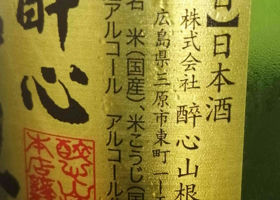 日】日本酒
株式会社 醉心山根
広島県三原市東町一丁
名 米(国産)、米こうじ(国
アルコール アルコール
醉心
醉心山
本店